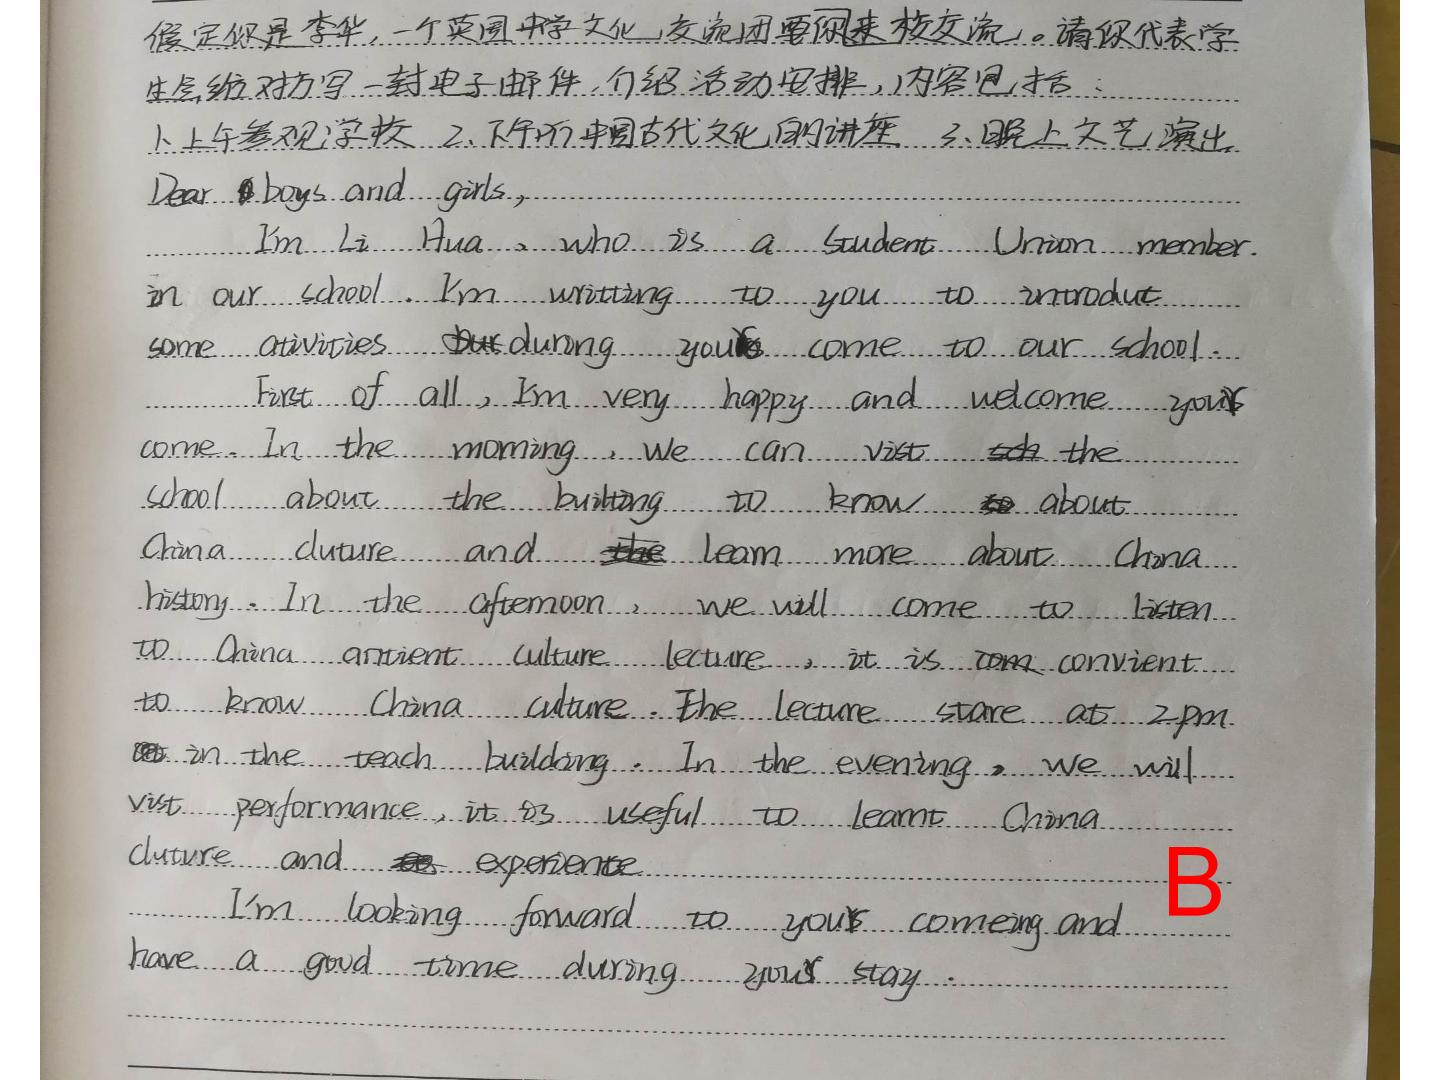 假定你是李华,一个英国中学文化交流团要你来校交流。请你代表学
生会给对方写一封电子邮件,介绍活动安排,内容包括:
1、上午参观学校 2、下午听中国古代文化的讲座 3、晚上文艺演出
Dear boys and girls,
I'm Li Hua, who is a student Union member.
in our school. I'm writting to you to introdut
some ativities during your come to our school.
First of all, I'm very happy and welcome your
come. In the morning, we can vist the
school about the builting to know about
China cluture and learn more about China
history. In the afternoon, we will come to listen
to China antient culture lecture, it is convient
to know China culture. The lecture stare at 2pm
in the teach building. In the evening, we will
vist performance, it is useful to learnt China
cluture and experience
I'm looking forward to your comeing and
have a good time during your stay.
B